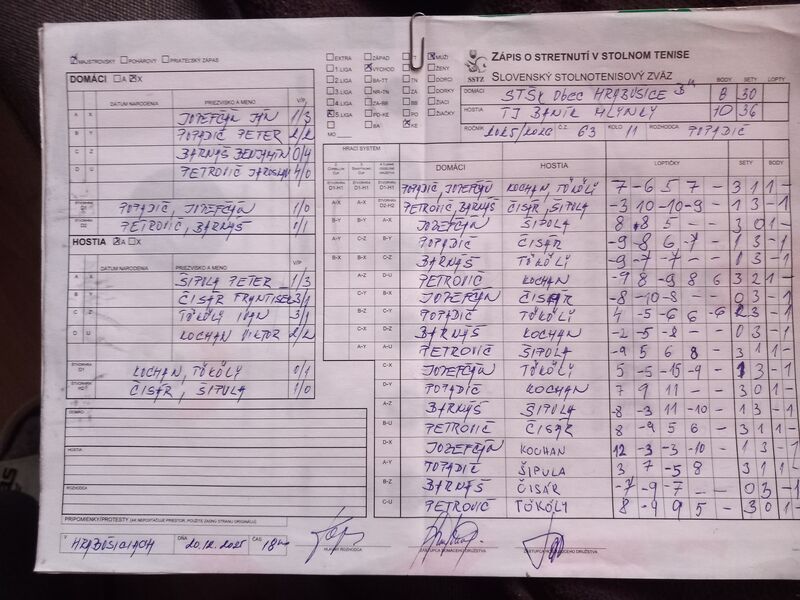 MAJSTROVSKÝ POHÁROVÝ PRIATEĽSKÝ ZÁPAS
ZÁPIS O STRETNUTÍ V STOLNOM TENISE
SSTZ SLOVENSKÝ STOLNOTENISOVÝ ZVÄZ
EXTRA ZÁPAD MUŽI
1. LIGA VÝCHOD ŽENY
2. LIGA BA-TT TN DORCI
3. LIGA NR-TN ZA DORKY
4. LIGA ZA-BB BB ŽIACI
5. LIGA PO-KE PO ŽIAČKY
BA KE
MO
BODY SETY LOPTY
DOMÁCI STŠK OBEC HRABUŠICE 8 30
HOSTIA TJ BANÍK MLYNKY 10 36
ROČNÍK 2025/2026 Č.Z. 63 KOLO 11 ROZHODCA POPADIČ
DOMÁCI A X
DÁTUM NARODENIA PRIEZVISKO A MENO V/P
A X JOZEFČÁN JÁN 1/3
B Y POPADIČ PETER 2/2
C Z BARNÁŠ BENJAMÍN 0/4
D U PETROVIČ JAROSLAV 4/0
ŠTVORHRA D1 POPADIČ, JOZEFČÁN 1/0
ŠTVORHRA D2 PETROVIČ, BARNÁŠ 0/1
HOSTIA A X
DÁTUM NARODENIA PRIEZVISKO A MENO V/P
A X ŠIPULA PETER 1/3
B Y ČISÁR FRANTIŠEK 3/1
C Z TÖKÖLY IVAN 3/1
D U KOCHAN VIKTOR 2/2
ŠTVORHRA D1 KOCHAN, TÖKÖLY 0/1
ŠTVORHRA H2 ČISÁR, ŠIPULA 1/0
DOMÁCI
HOSTIA
ROZHODCA
HRACÍ SYSTÉM
DOMÁCI HOSTIA LOPTIČKY SETY BODY
D1-H1 D1-H1 D1-H1 POPADIČ, JOZEFČÁN KOCHAN, TÖKÖLY 7 -6 5 7 - 3 1 1 -
A-X A-X D2-H2 PETROVIČ, BARNÁŠ ČISÁR, ŠIPULA -3 10 -10 -9 - 1 3 - 1
B-Y B-Y A-X JOZEFČÁN ŠIPULA 8 8 5 - - 3 0 1 -
A-Y C-Z B-Y POPADIČ ČISÁR -9 -8 6 -7 - 1 3 - 1
B-X B-X C-Z BARNÁŠ TÖKÖLY -9 -7 -7 - - 0 3 - 1
A-Z D-U PETROVIČ KOCHAN -9 8 -9 8 6 3 2 1 -
C-Y B-X JOZEFČÁN ČISÁR -8 -10 -8 - - 0 3 - 1
B-Z C-Y POPADIČ TÖKÖLY 4 -5 -6 6 -6 2 3 - 1
C-X D-Z BARNÁŠ KOCHAN -2 -5 -8 - - 0 3 - 1
A-Y A-U PETROVIČ ŠIPULA -9 5 6 8 - 3 1 1 -
C-X JOZEFČÁN TÖKÖLY 5 -5 -15 -9 - 1 3 - 1
D-Y POPADIČ KOCHAN 7 9 11 - - 3 0 1 -
A-Z BARNÁŠ ŠIPULA -8 -3 11 -10 - 1 3 - 1
B-U PETROVIČ ČISÁR -8 -9 5 6 - 3 1 1 -
D-X JOZEFČÁN KOCHAN 12 -3 -3 -10 - 1 3 - 1
A-Y POPADIČ ŠIPULA 3 7 -5 8 3 1 1 -
B-Z BARNÁŠ ČISÁR -7 -9 -7 - - 0 3 - 1
C-U PETROVIČ TÖKÖLY 8 9 5 - 3 0 1 -
PRIPOMIENKY/PROTESTY (AK NEPOSTAČUJE PRIESTOR, POUŽITE ZADNÚ STRANU ORIGINÁLU)
V HRABUŠICIACH DŇA 20.12.2025 ČAS 18
HLAVNÝ ROZHODCA ZÁSTUPCA DOMÁCEHO DRUŽSTVA ZÁSTUPCA HOSŤUJÚCEHO DRUŽSTVA